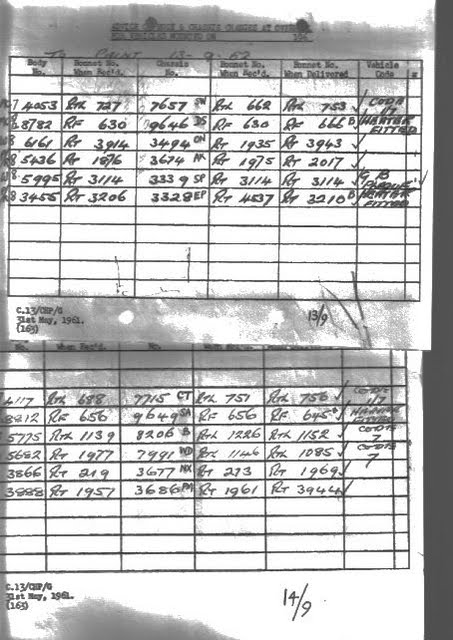 SENIOR SERVICE & CHASSIS CHANGES AT
TO COUNT 13-9-62
Body No. Bonnet No. When Rec'd. Chassis No. Bonnet No. When Rec'd. Bonnet No. When Delivered Vehicle Code
4053 Rtx 727 7657 SW Rtx 662 Rtx 753 ✓ CODE 17
8782 RF 630 9646 RF 630 RF 666 B HEATER FITTED
6161 RT 3914 3494 ON RT 1935 RT 3943 ✓
5436 RT 1876 3674 RT 1975 RT 2017 ✓
5995 RT 3114 3339 SP RT 3114 RT 3114 ✓ G B
3455 RT 3206 3328 EP RT 4537 RT 3210 B HEATER FITTED
C.13/CHP/G
31st May, 1961.
(163)
13/9
No. When Rec'd. No.
4117 Rtx 688 7715 CT Rtx 751 Rtx 756 ✓ CODE 17
8812 RF 656 9649 SA RF 656 RF 645 ✓ FITTED
5775 Rtx 1139 8206 B Rtx 1226 Rtx 1152 ✓ CODE 7
5682 RT 1977 7991 Rtx 1146 Rtx 1085 ✓ CODE 7
3866 RT 219 3677 NX RT 273 RT 1969 ✓
3888 RT 1957 3686 RT 1961 RT 3944 ✓
C.13/CHP/G
31st May, 1961.
(163)
14/9